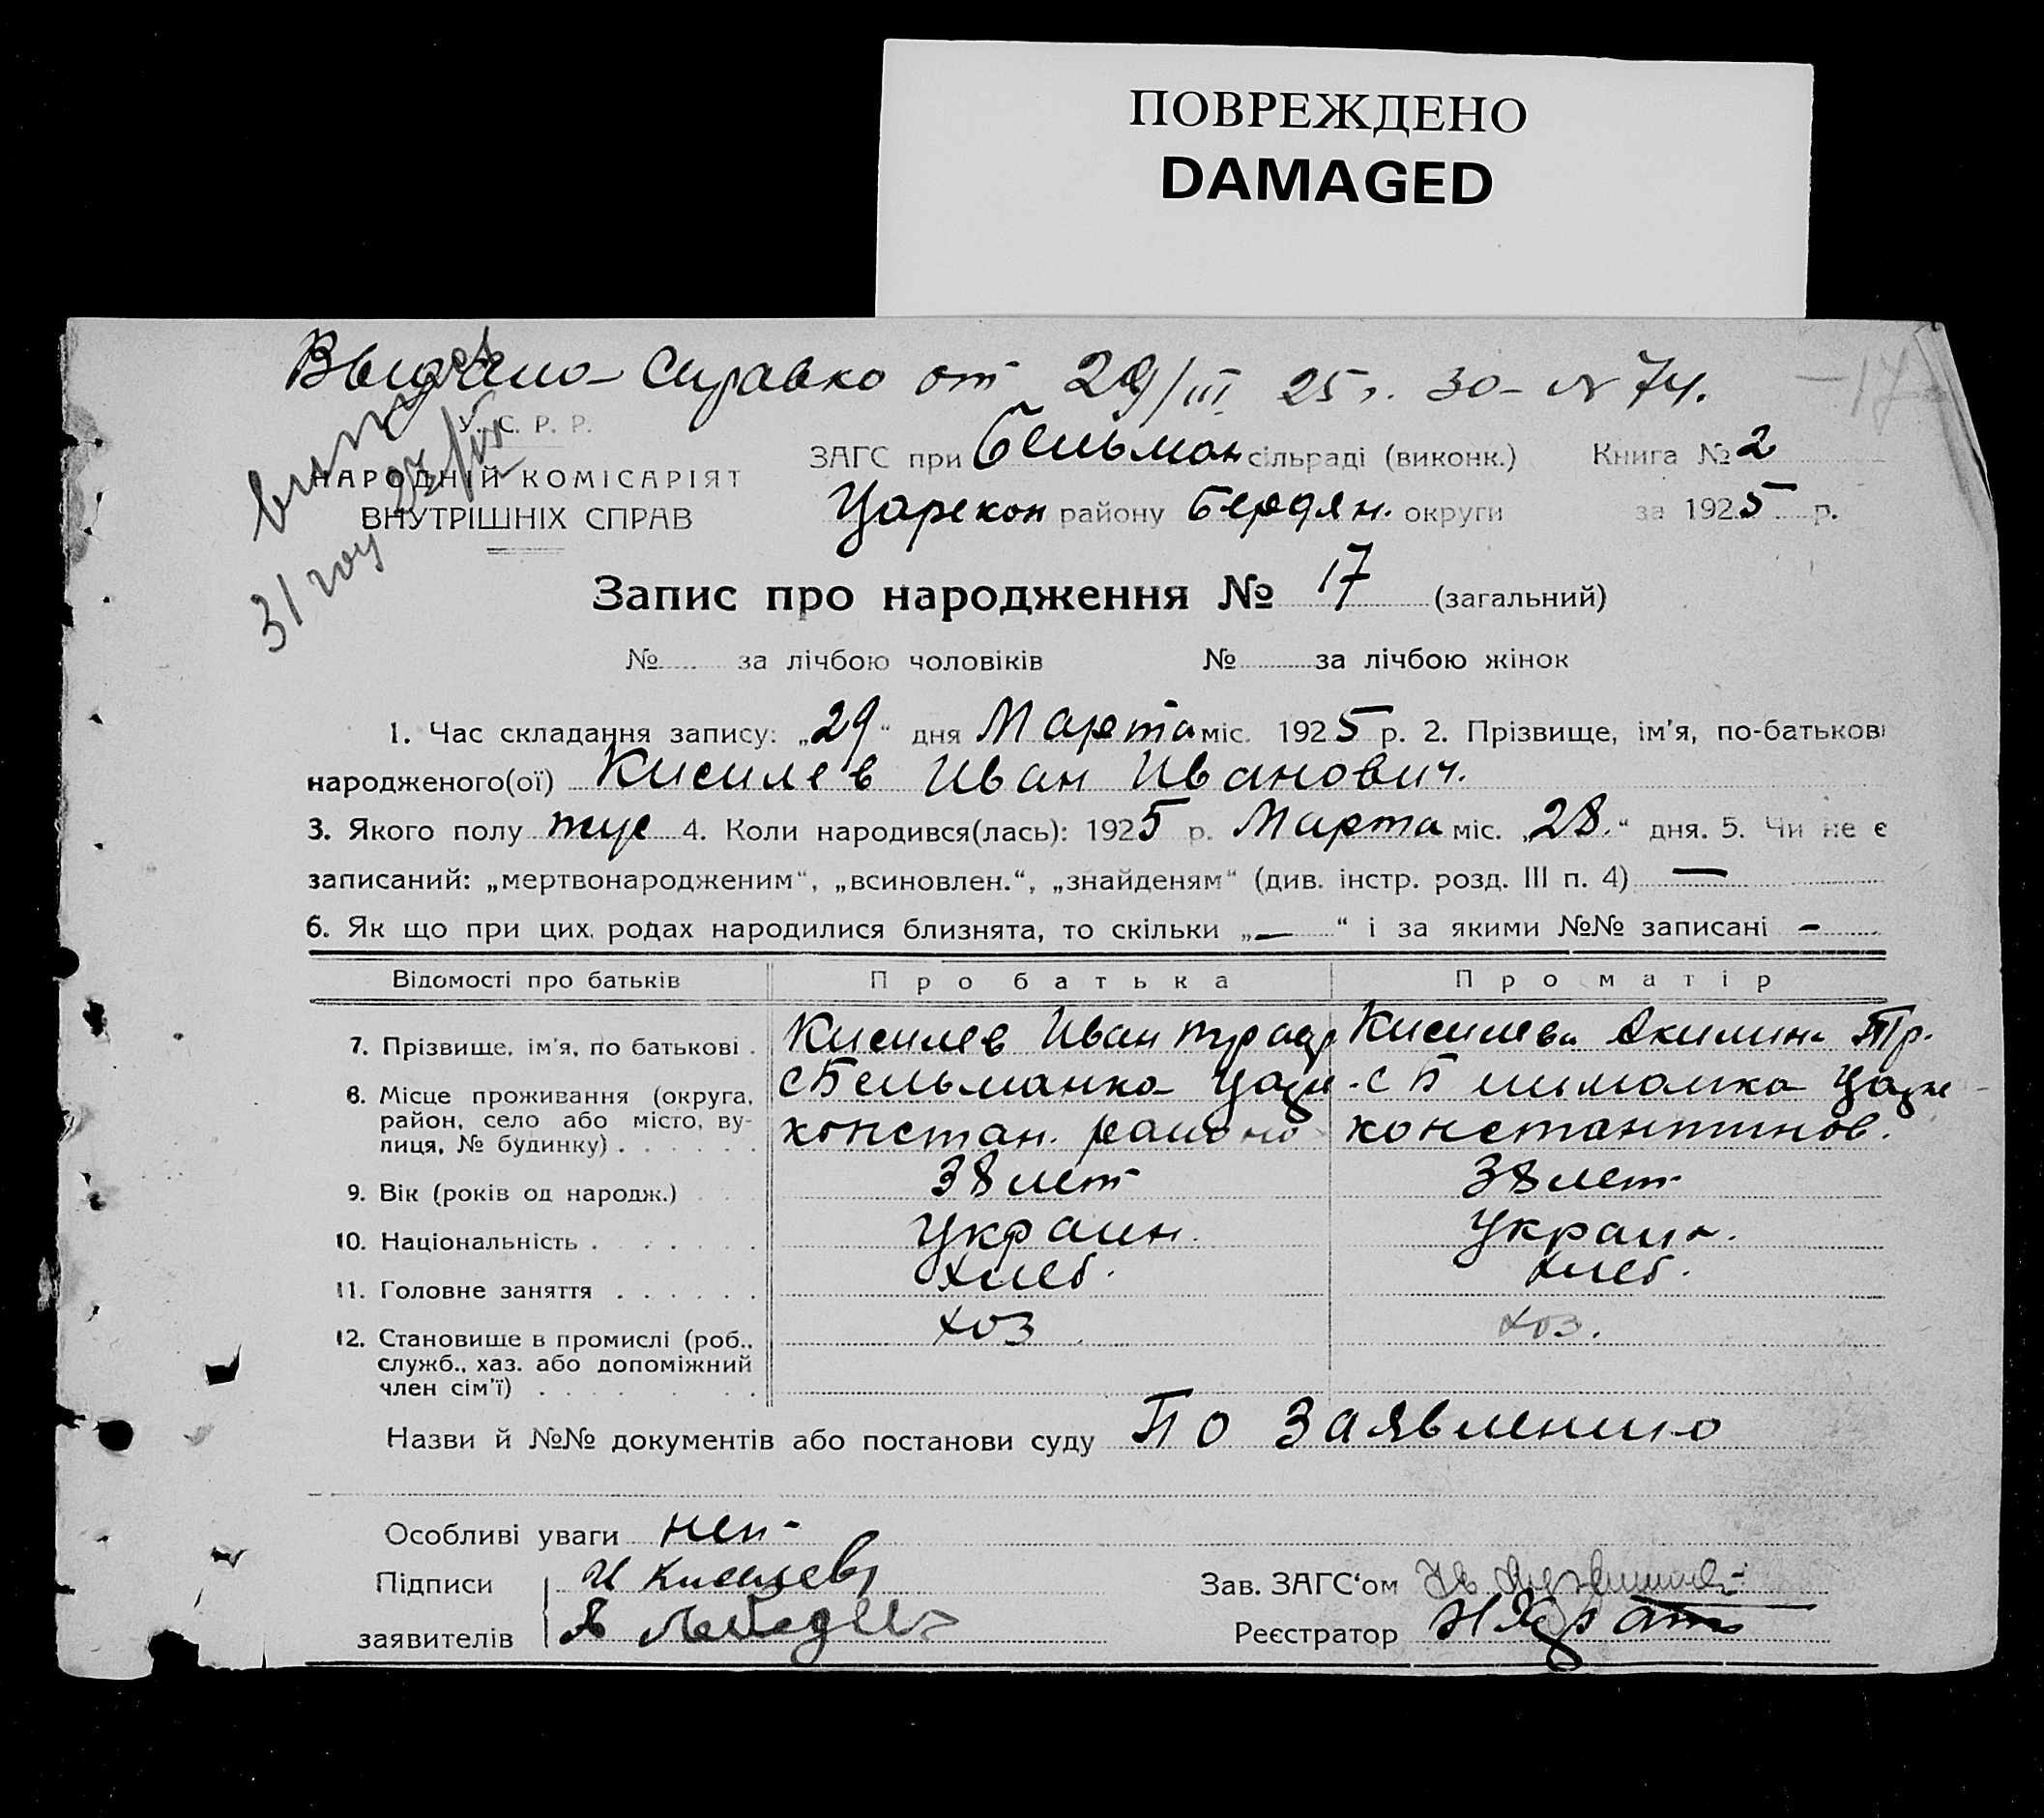 ПОВРЕЖДЕНО
DAMAGED
Выдано справко от 29/III 25 г. 30 - N 74.
— 17
У. С. Р. Р.
НАРОДНІЙ КОМІСАРІЯТ
ВНУТРІШНІХ СПРАВ
31 году
ЗАГС при Бельман сільраді (виконк.) Книга № 2
Царекон району Бердян. округи за 1925 р.
Запис про народження № 17 (загальний)
№ за лічбою чоловіків № за лічбою жінок
1. Час складання запису: „29“ дня Марта міс. 1925 р. 2. Прізвище, ім'я, по-батькові
народженого(ої) Кисилев Иван Иванович.
3. Якого полу муж 4. Коли народився(лась): 1925 р. Марта міс. „28.“ дня. 5. Чи не є
записаний: „мертвонародженим“, „всиновлен.“, „знайденям“ (див. інстр. розд. III п. 4) —
6. Як що при цих родах народилися близнята, то скільки „—“ і за якими №№ записані -
Відомості про батьків Про батька Про матір
7. Прізвище, ім'я, по батькові . Кисилев Иван Кисилева Акилина Тр.
8. Місце проживання (округа, район, село або місто, вулиця, № будинку) . . . . . .
с Бельманка Царе
констан. района
константинов.
9. Вік (років од народж.) 38 лет 38 лет
10. Національність . . . . . . Украин. Украин.
11. Головне заняття . . . . . . хлеб. хлеб.
12. Становище в промислі (роб., служб., хаз. або допоміжний член сім'ї) . . . . .
хоз хоз.
Назви й №№ документів або постанови суду По Заявлению
Особливі уваги нет -
Підписи И Кисилев
заявителів
Зав. ЗАГС'ом
Реєстратор